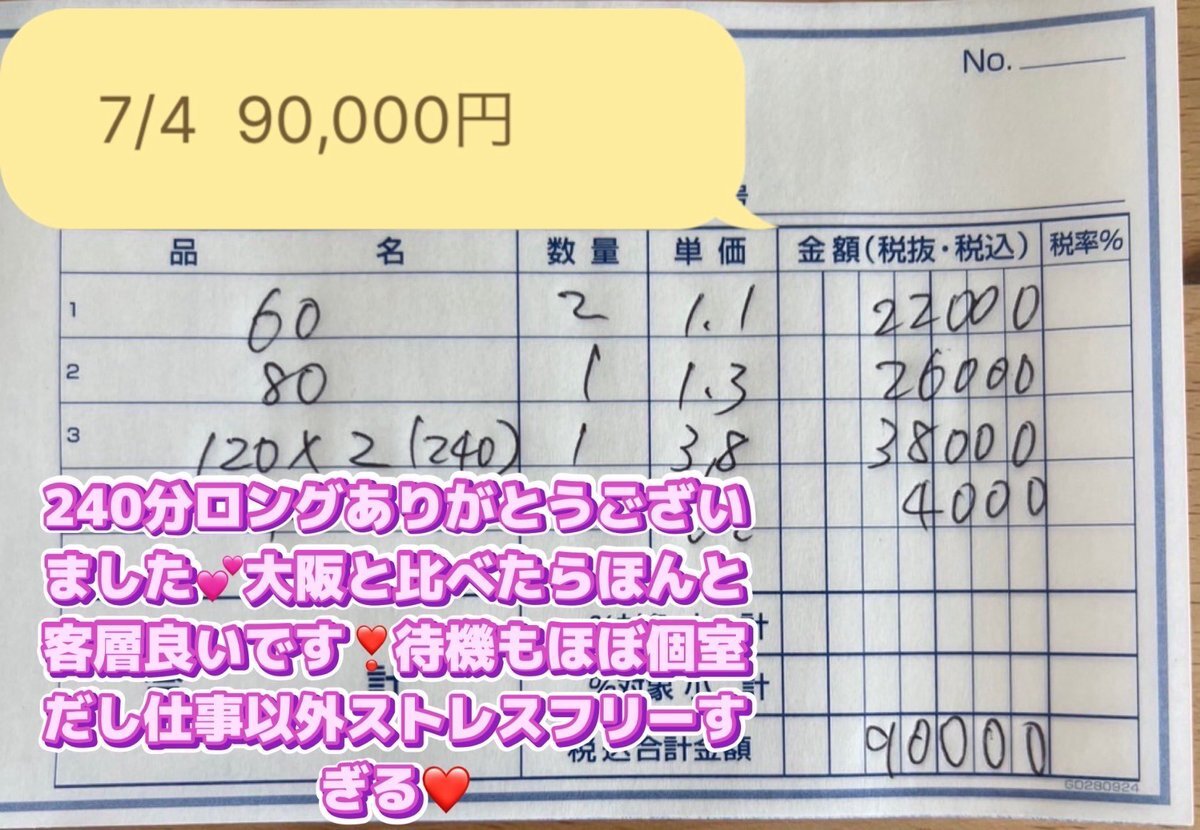 No.
7/4 90,000円
品名 数量 単価 金額(税抜・税込) 税率%
1 60 2 1.1 22000
2 80 1 1.3 26000
3 120×2(240) 1 3,8 38000
4000
240分ロングありがとうござい
ました💕大阪と比べたらほんと
客層良いです❣️待機もほぼ個室
だし仕事以外ストレスフリーす
ぎる❤️
計
%対象小計
税込合計金額 90000
GD280924